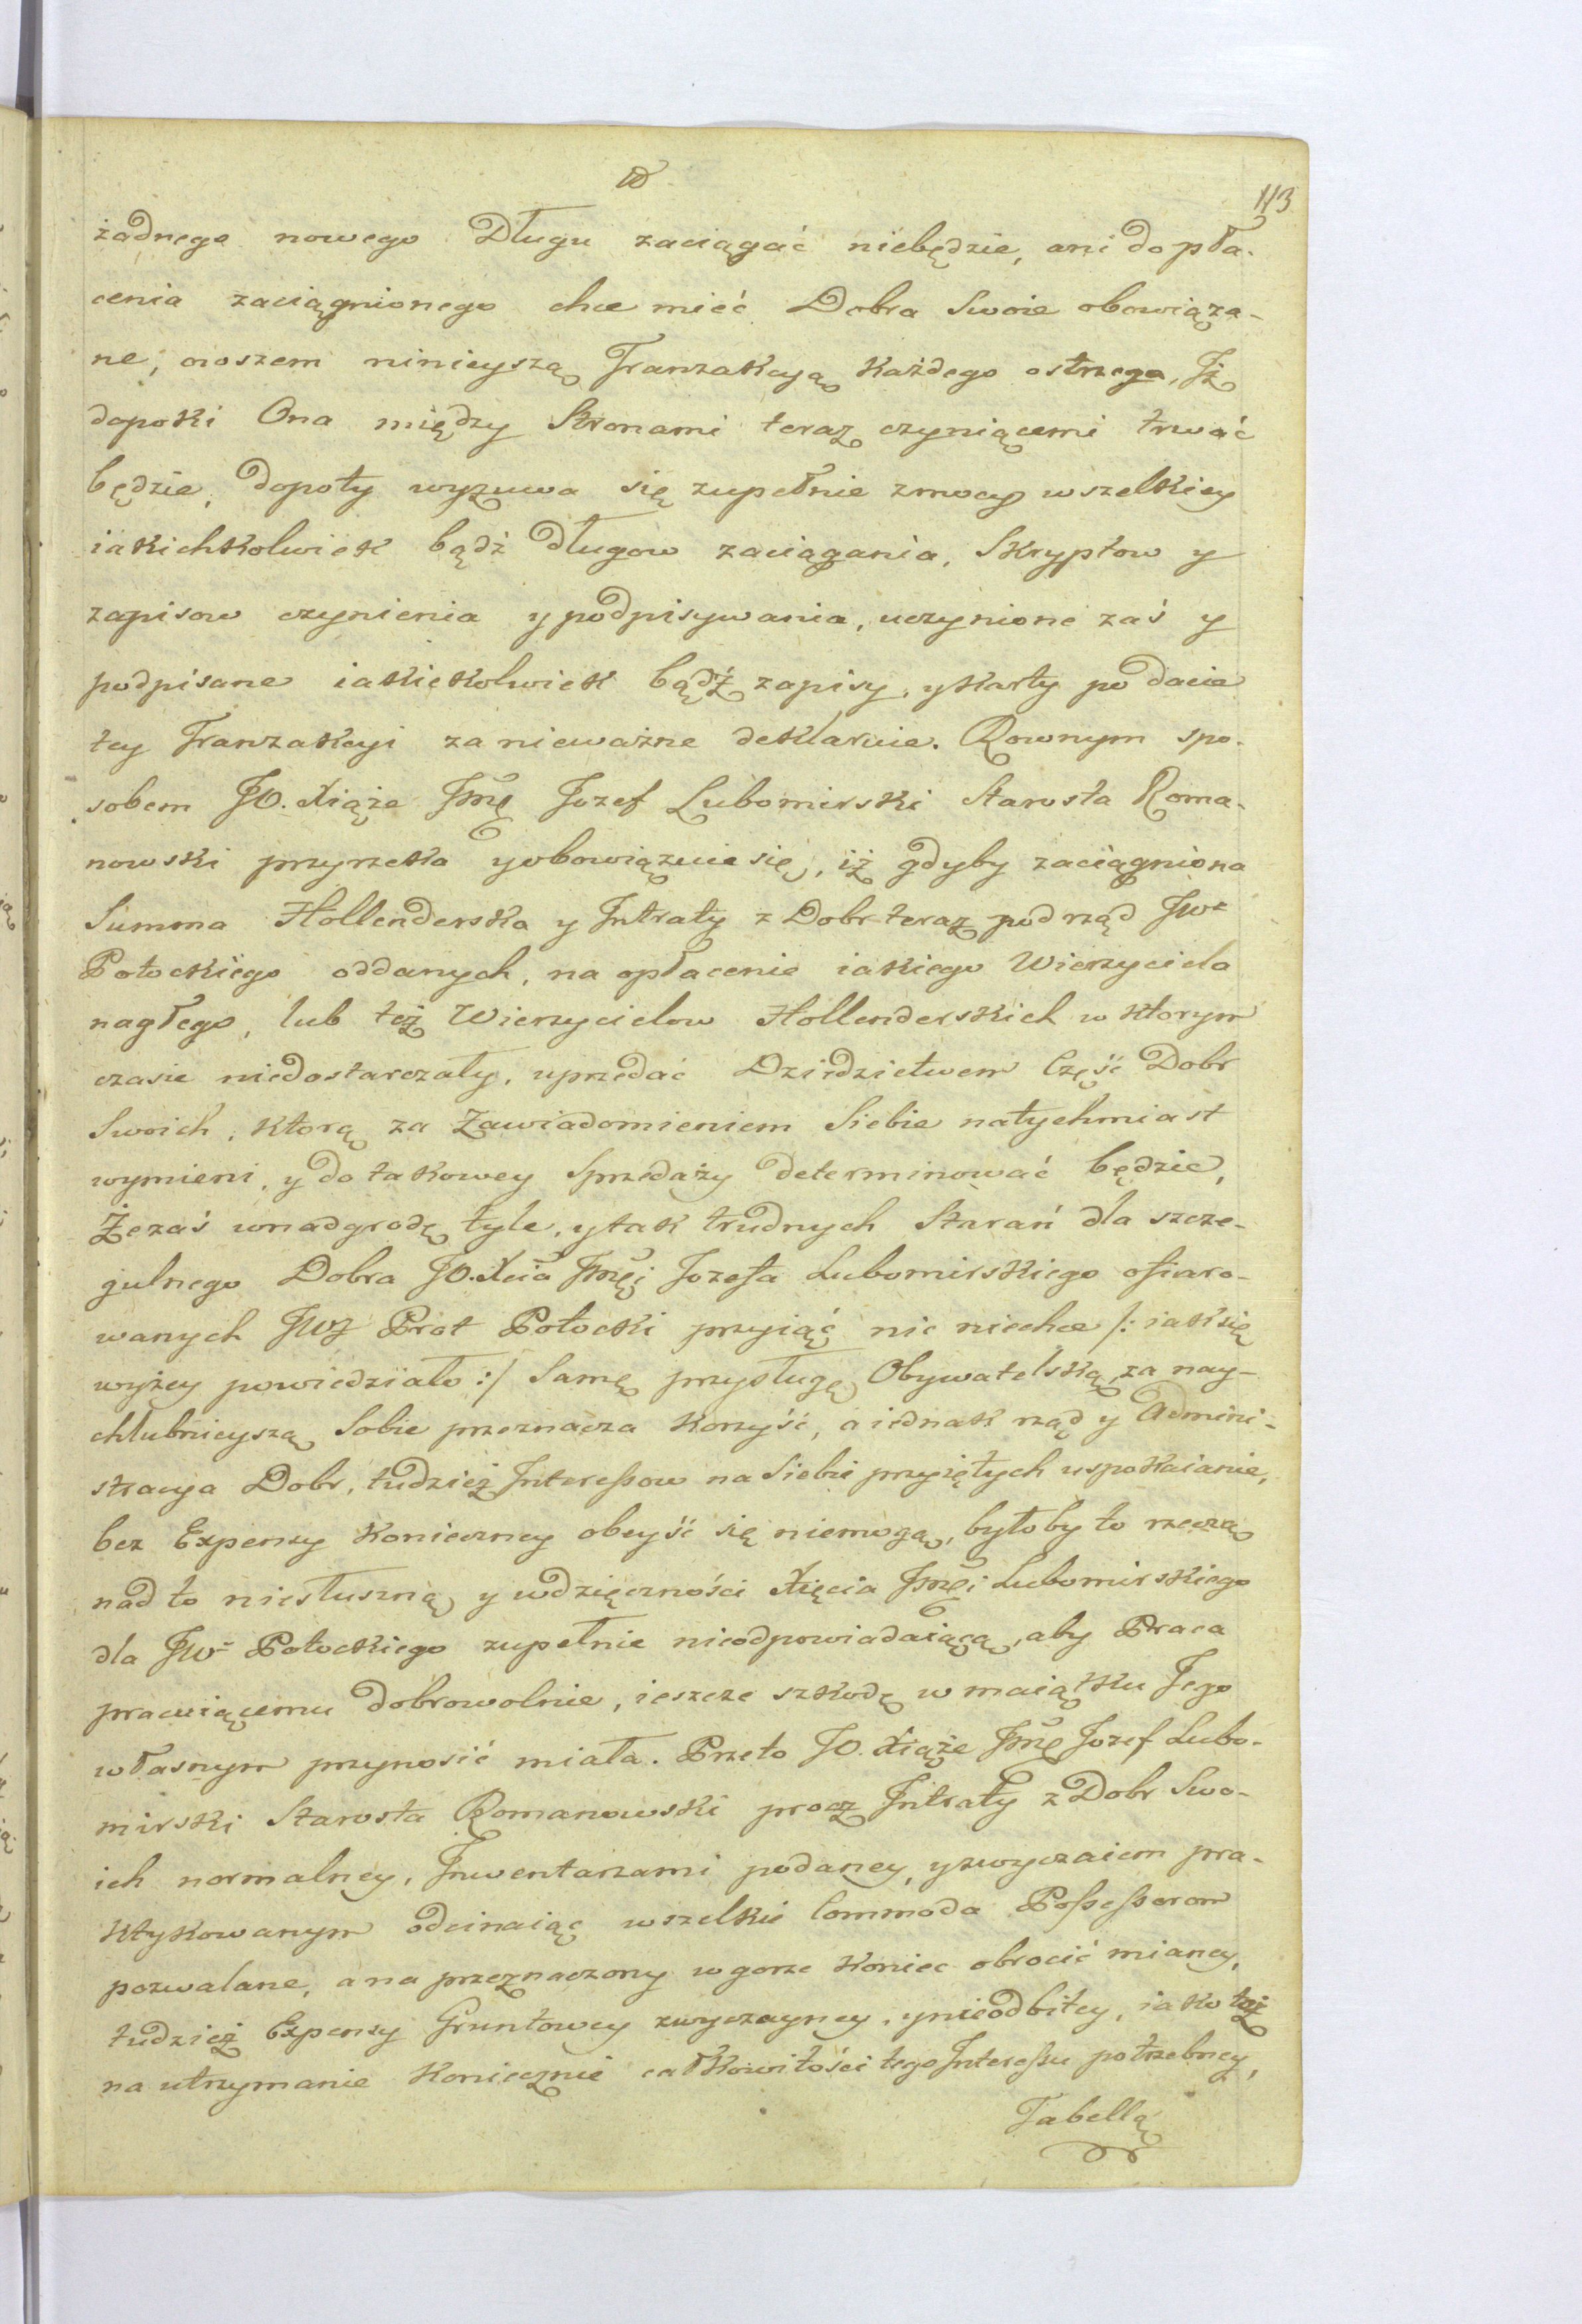 113
żadnego nowego Długu zaciągać niebędzie, ani do pła-
cenia zaciągnionego chce mieć Dobra Swoie obowiąza-
ne, owszem ninieyszą Tranzakcyą każdego ostrzega, Jż
dopoki Ona między Stronami teraz czyniącemi trwać
będzie, dopoty wyzuwa się zupełnie zmocy wszelkiey
iakichkolwiek bądź długow zaciągania, Skryptow y
zapisow czynienia y podpisywania, uczynione zaś y
podpisane iakiekolwiek bądź zapisy, y karty po dacie
tey Tranzakcyi za nieważne deklaruie. Rownym spo-
sobem JO. Xiąże Jmć Jozef Lubomirski Starosta Roma-
nowski przyrzeka y obowiązuie się, iż gdyby zaciągniona
Summa Hollenderska y Jntraty z Dobr teraz pod rząd JWo
Potockiego oddanych, na opłacenie iakiego Wierzyciela
nagłego, lub też Wierzycielow Hollenderskich w ktorym
czasie niedostarczały, uprzedać Dziedzictwem Część Dobr
Swoich, ktorą za Zawiadomieniem Siebie natychmiast
wymieni, y do takowey Sprzedaży determinować będzie,
Żezaś wnadgrodę tyle, y tak trudnych Starań dla szcze-
gulnego Dobra JO. Xcia Jmći Jozefa Lubomirskiego ofiaro-
wanych JWJ Prot Potocki przyiąć nic niechce /: iak się
wyżey powiedziało :/ Samę przysługę Obywatelską, za nay-
chlubnieyszą Sobie przeznacza korzyść, a iednak rząd y Admini-
stracya Dobr, tudzież Jnteressow na Siebie przyiętych uspokaianie,
bez Expensy konieczney obeyść się niemogą, byłoby to rzeczą
nad to niesłuszną y wdzięczności Xięcia Jmći Lubomirskiego
dla JWo Potockiego zupełnie nieodpowiadaiącą, aby Praca
pracuiącemu dobrowolnie, ieszcze szkodę w maiątku Jego
własnym przynosić miała. Przeto JO. Xiąże Jmć Jozef Lubo-
mirski Starosta Romanowski procz Jntraty z Dobr Swo-
ich normalney, Jnwentarzami podaney, y zwyczaiem pra-
ktykowanym odcinaiąc wszelkie Commoda Possessorom
pozwalane, a na przeznaczony w gorze koniec obrocić mianey,
tudzież Expensy Gruntowey zwyczayney, y nieodbitey, iako też
na utrzymanie koniecznie całkowitości tego Jnteressu potrzebney,
Tabellą